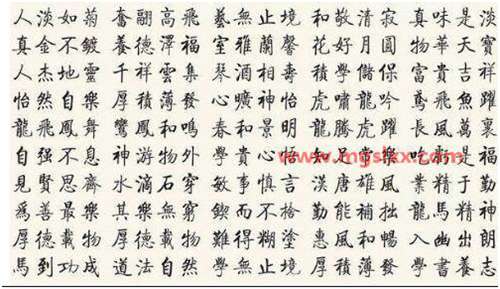 人淡如菊 奮翮高飛 藝無止境 和敬清寂 真味是淡
真金不鍍 養德澤福 室雅蘭馨 花好月圓 物華天寶
人杰地靈 千祥雲集 琴酒相壽 積學儲保 富貴吉祥
怡然自樂 厚積薄發 心曠神怡 虎嘯龍吟 鳶飛魚躍
龍飛鳳舞 鸞鳳和鳴 春和景明 龍騰虎躍 長風萬裏
自强不息 神游物外 學貴心悟 知足常樂 吃虧是福
www.mgslxx.com
見賢思齊 水滴石穿 敏事慎言 漢唐雄風 業精於勤
爲善最樂 其樂無窮 鍥而不捨 勤能補拙 龍馬精神
厚德載物 厚德載物 難得糊塗 惠風和暢 入幽出朗
馬到功成 道法自然 學無止境 厚積薄發 學書養志